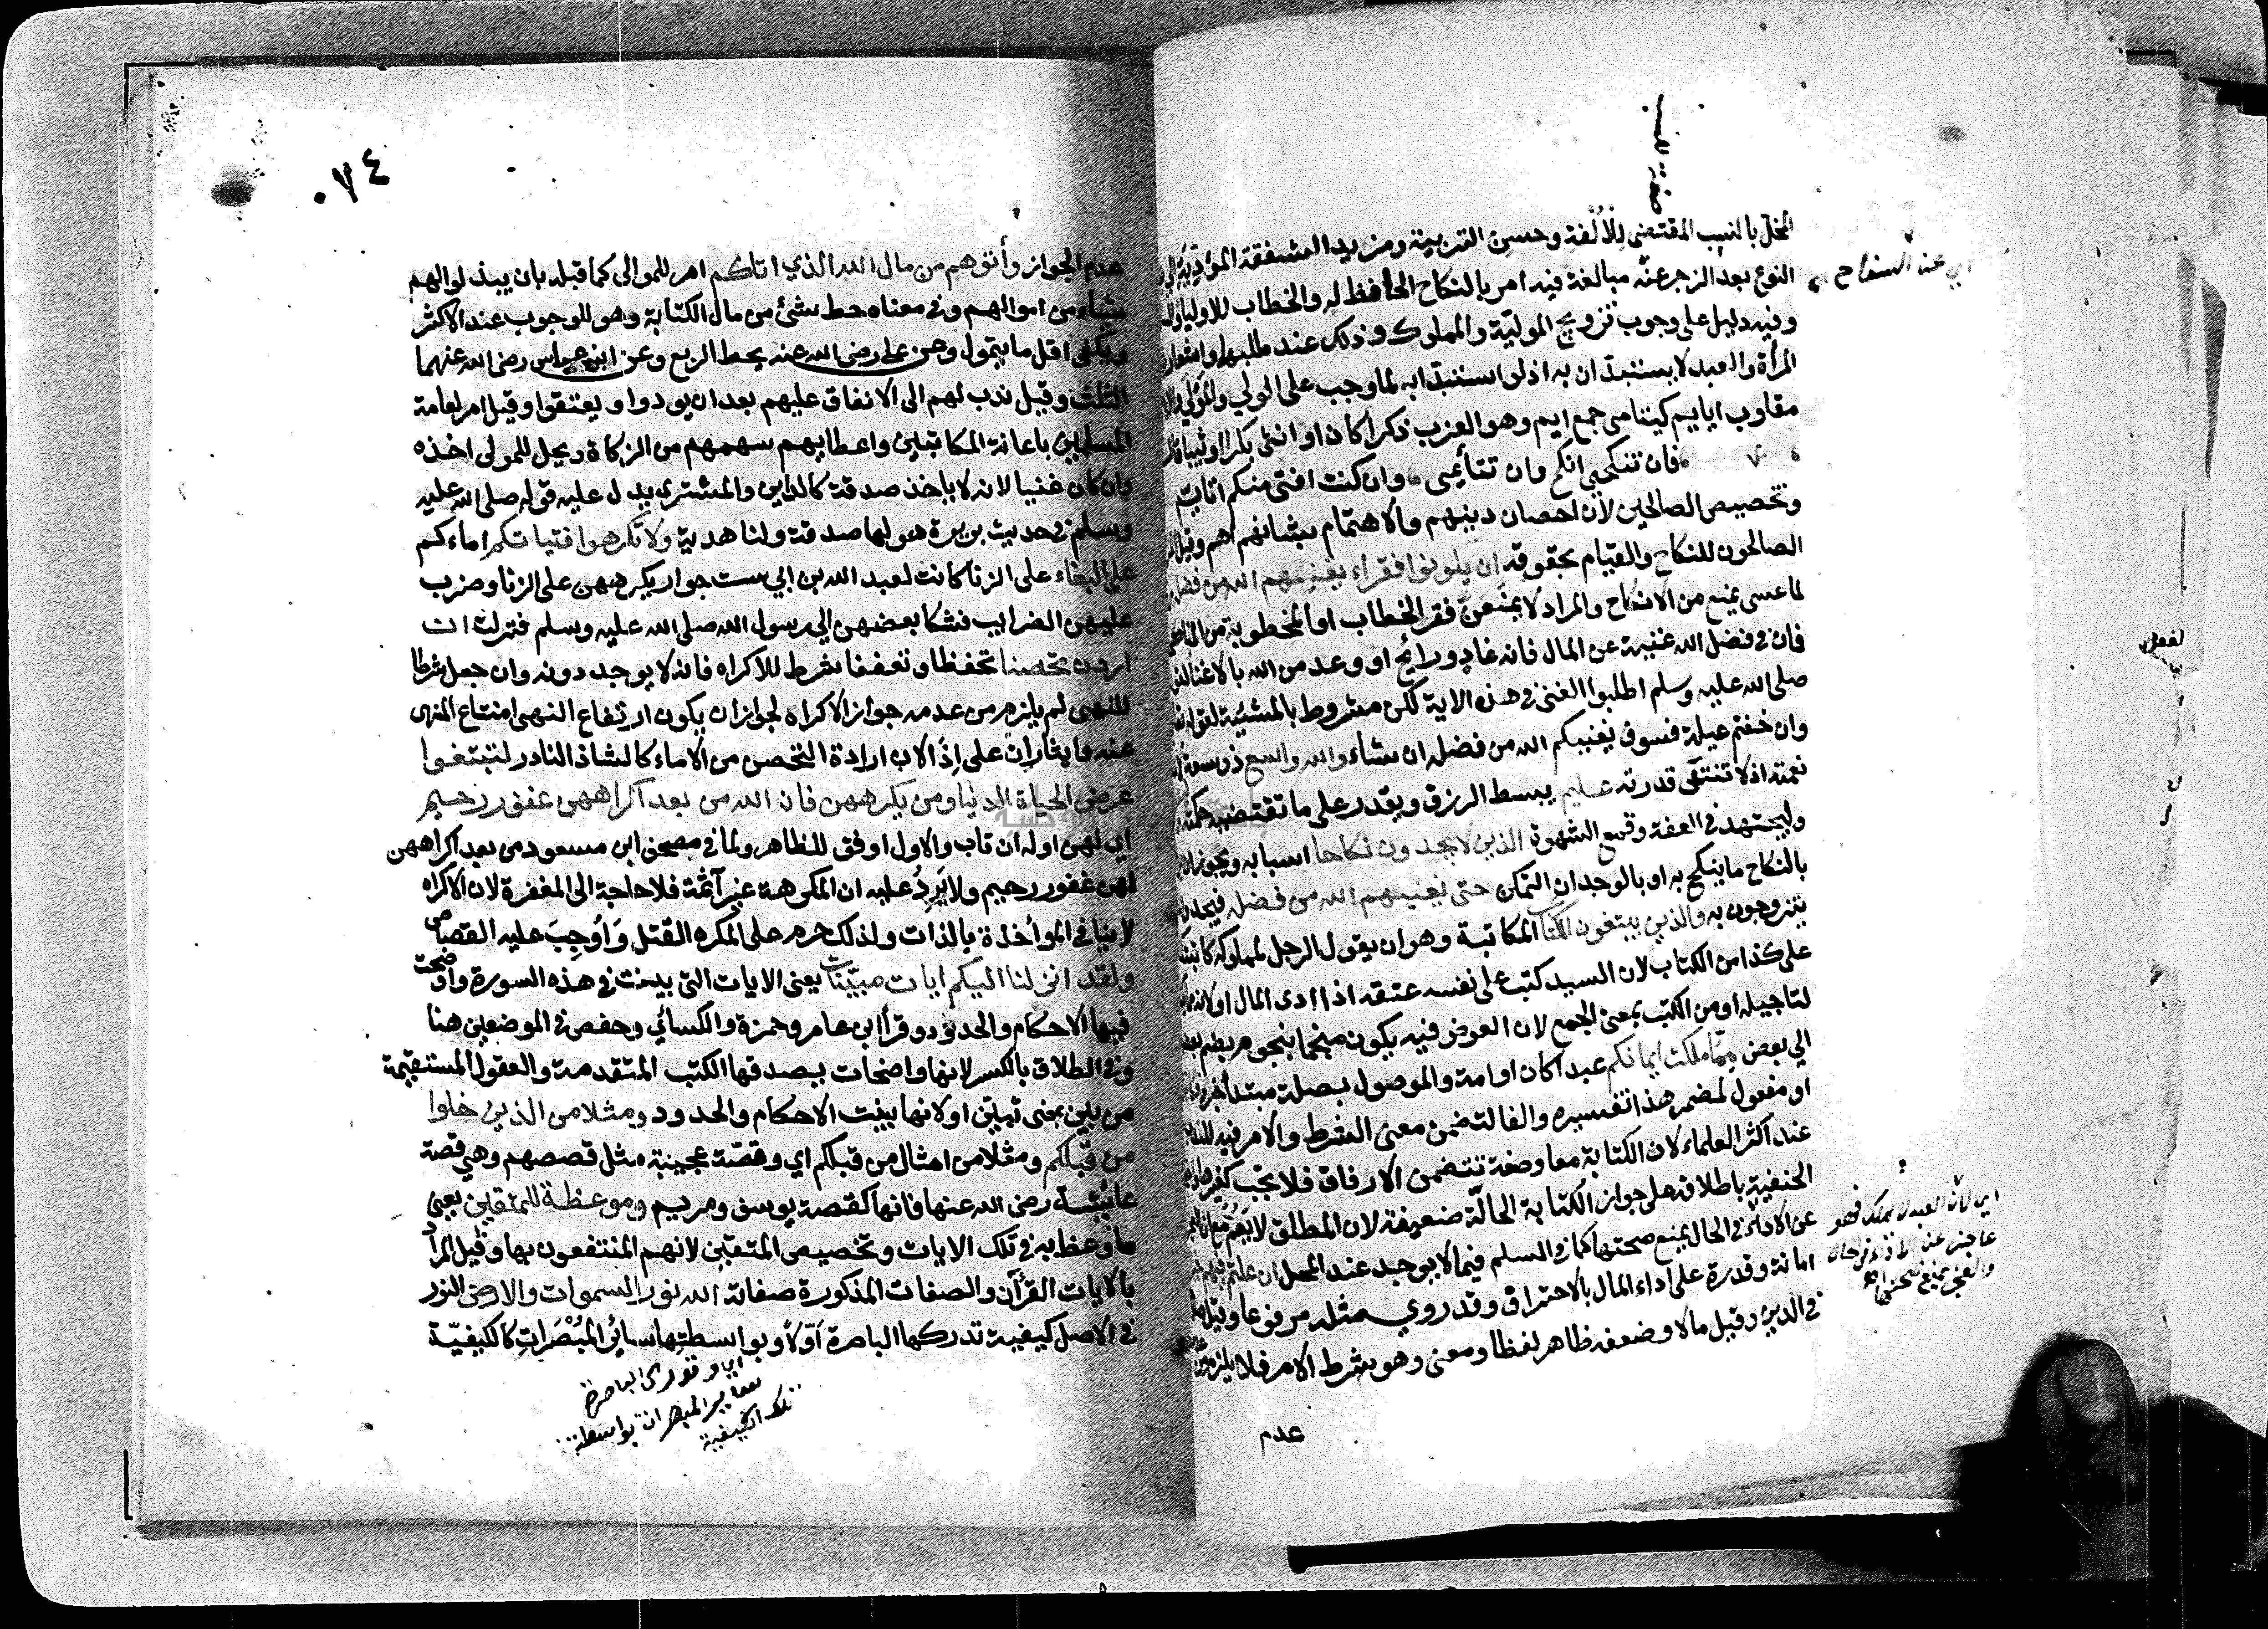 صفة للنسب
المخل بالنسب المقتضي للألفة وحسن التربية ومزيد الشفقة المؤدية إلى
اي عند السفاح
النوع بعد الزجر عنه مبالغة فيه امر بالنكاح الحافظ له والخطاب للاولياء
وفيه دليل على وجوب تزويج المولية والمملوك وذلك عند طلبهما واشعار
المرأة والعبد لا يستبدان به اذ لو استبدا به لما وجب على الولي والمولى
مقلوب ايايم كيتامى جمع ايم وهو العزب ذكرا كان او انثى بكرا او ثيبا قال
فان تنكحي انكح وان تتأيمى وان كنت افتى منكم اتأيم
وتخصيص الصالحين لان احصان دينهم والاهتمام بشانهم اهم وقيل
الصالحون للنكاح والقيام بحقوقه ان يكونوا فقراء يغنيهم الله من فضله
لما عسى يمنع من الانكاح والمراد لا يمنعن فقر الخطاب او المخطوبة من المناكحة
فان في فضل الله غنية عن المال فانه غاد ورائح او وعد من الله بالاغناء
صلى الله عليه وسلم اطلبوا الغنى في هذه الاية لكن مشروط بالمشيئة لقوله
وان خفتم عيلة فسوف يغنيكم الله من فضله ان شاء والله واسع ذو سعة
نعمته اذ لا تنتهى قدرته عليم يبسط الرزق ويقدر على ما تقتضيه حكمته
وليجتهد في العفة وقمع الشهوة الذين لا يجدون نكاحا اسبابه ويجوز ان
بالنكاح ما ينكح به او بالوجدان التمكن حتى يغنيهم الله من فضله فيجدوا
يتزوجون به والذين يبتغون الكتاب المكاتبة وهو ان يقول الرجل لمملوكه كاتبتك
على كذا من الكتاب لان السيد كتب على نفسه عتقه اذا ادى المال او لانه
لتاجيله او من الكتب بمعنى الجمع لان العوض فيه يكون منجما بنجوم يضم بعضها
الي بعض مما ملكت ايمانكم عبدا كان او امة والموصول بصلته مبتدأ خبره
او مفعول لمضمر هذا تفسيره والفا لتضمن معنى الشرط والامر فيه للندب
عند اكثر العلماء لان الكتابة معاوضة تتضمن الارفاق فلا تجب كغيرها
الحنفية باطلاقه على جواز الكتابة الحالة ضعيفة لان المطلق لا يعم مع ان العجز
عن الاداء في الحال يمنع صحتها كما في السلم فيما لا يوجد عند المحل ان علمتم فيهم خيرا
امانة وقدرة على اداء المال بالاحتراف وقد روي مثله مرفوعا وقيل
في الدين وقيل مالا وضعفه ظاهر لفظا ومعنى وهو شرط الامر فلا يلزم من
اي لان العبد لا يملك فهو
عاجز عن الاداء في الحال
والعجز يمنع صحتها
عدم
٠٧٤
عدم الجواز وأتوهم من مال الله الذي اتاكم امر للموالى كما قبله بان يبذلوا لهم
شيئا من اموالهم وفي معناه حط شئ من مال الكتابة وهو للوجوب عند الاكثر
ويكفى اقل ما يتمول وعن على رضى الله عنه يحط الربع وعن ابن عباس رضى الله عنهما
الثلث وقيل ندب لهم الى الانفاق عليهم بعد ان يودوا ويعتقوا وقيل امر لعامة
المسلمين باعانة المكاتبين واعطايهم سهمهم من الزكاة ويحل للمولى اخذه
وان كان غنيا لانه لا ياخذه صدقة كالداين والمشترى يدل عليه قوله صلى الله عليه
وسلم في حديث بريرة هو لها صدقة ولنا هدية ولا تكرهوا فتياتكم اماءكم
على البغاء على الزنا كانت لعبد الله بن ابي ست جوار يكرههن على الزنا وضرب
عليهن الضرايب فشكا بعضهن الي رسول الله صلى الله عليه وسلم فنزلت ان
اردن تحصنا تحفظا وتعففا شرط للاكراه فانه لا يوجد دونه وان جعل شرطا
للنهى لم يلزم من عدمه جواز الاكراه لجواز ان يكون ارتفاع النهى امتناع المنهى
عنه وايثار ان على اذا لان ارادة التحصن من الاماء كالشاذ النادر لتبتغوا
عرض الحياة الدنيا ومن يكرههن فان الله من بعد اكراههن غفور رحيم
اي لهن او له ان تاب والاول اوفق للظاهر ولما في مصحف ابن مسعود من بعد اكراههن
لهن غفور رحيم ولا يرد عليه ان المكرهة غير آثمة فلا حاجة الى المغفرة لان الاكراه
لا ينافى المواخذة بالذات ولذلك حرم على المكره القتل وأوجب عليه القصاص
ولقد انزلنا اليكم ايات مبينات يعنى الايات التى بينت في هذه السورة واوضحت
فيها الاحكام والحدود وقرأ ابن عامر وحمزة والكسائي وحفص في الموضعين هنا
وفي الطلاق بالكسر لانها واضحات يصدقها الكتب المتقدمة والعقول المستقيمة
من بين بمعنى تبين او لانها بينت الاحكام والحدود ومثلا من الذين خلوا
من قبلكم ومثلا من امثال من قبلكم اي وقصة عجيبة مثل قصصهم وهي قصة
عائيشة رضى الله عنها فانها كقصة يوسف ومريم وموعظة للمتقين يعنى
ما وعظ به في تلك الايات وتخصيص المتقين لانهم المنتفعون بها وقيل المراد
بالايات القرآن والصفات المذكورة صفاته الله نور السموات والارض النور
في الاصل كيفية تدركها الباصرة أولا وبواسطتها سائر المبصرات كالكيفية
اي وتدرك الباصرة
سماير المبصرات بواسطة
تلك الكيفية